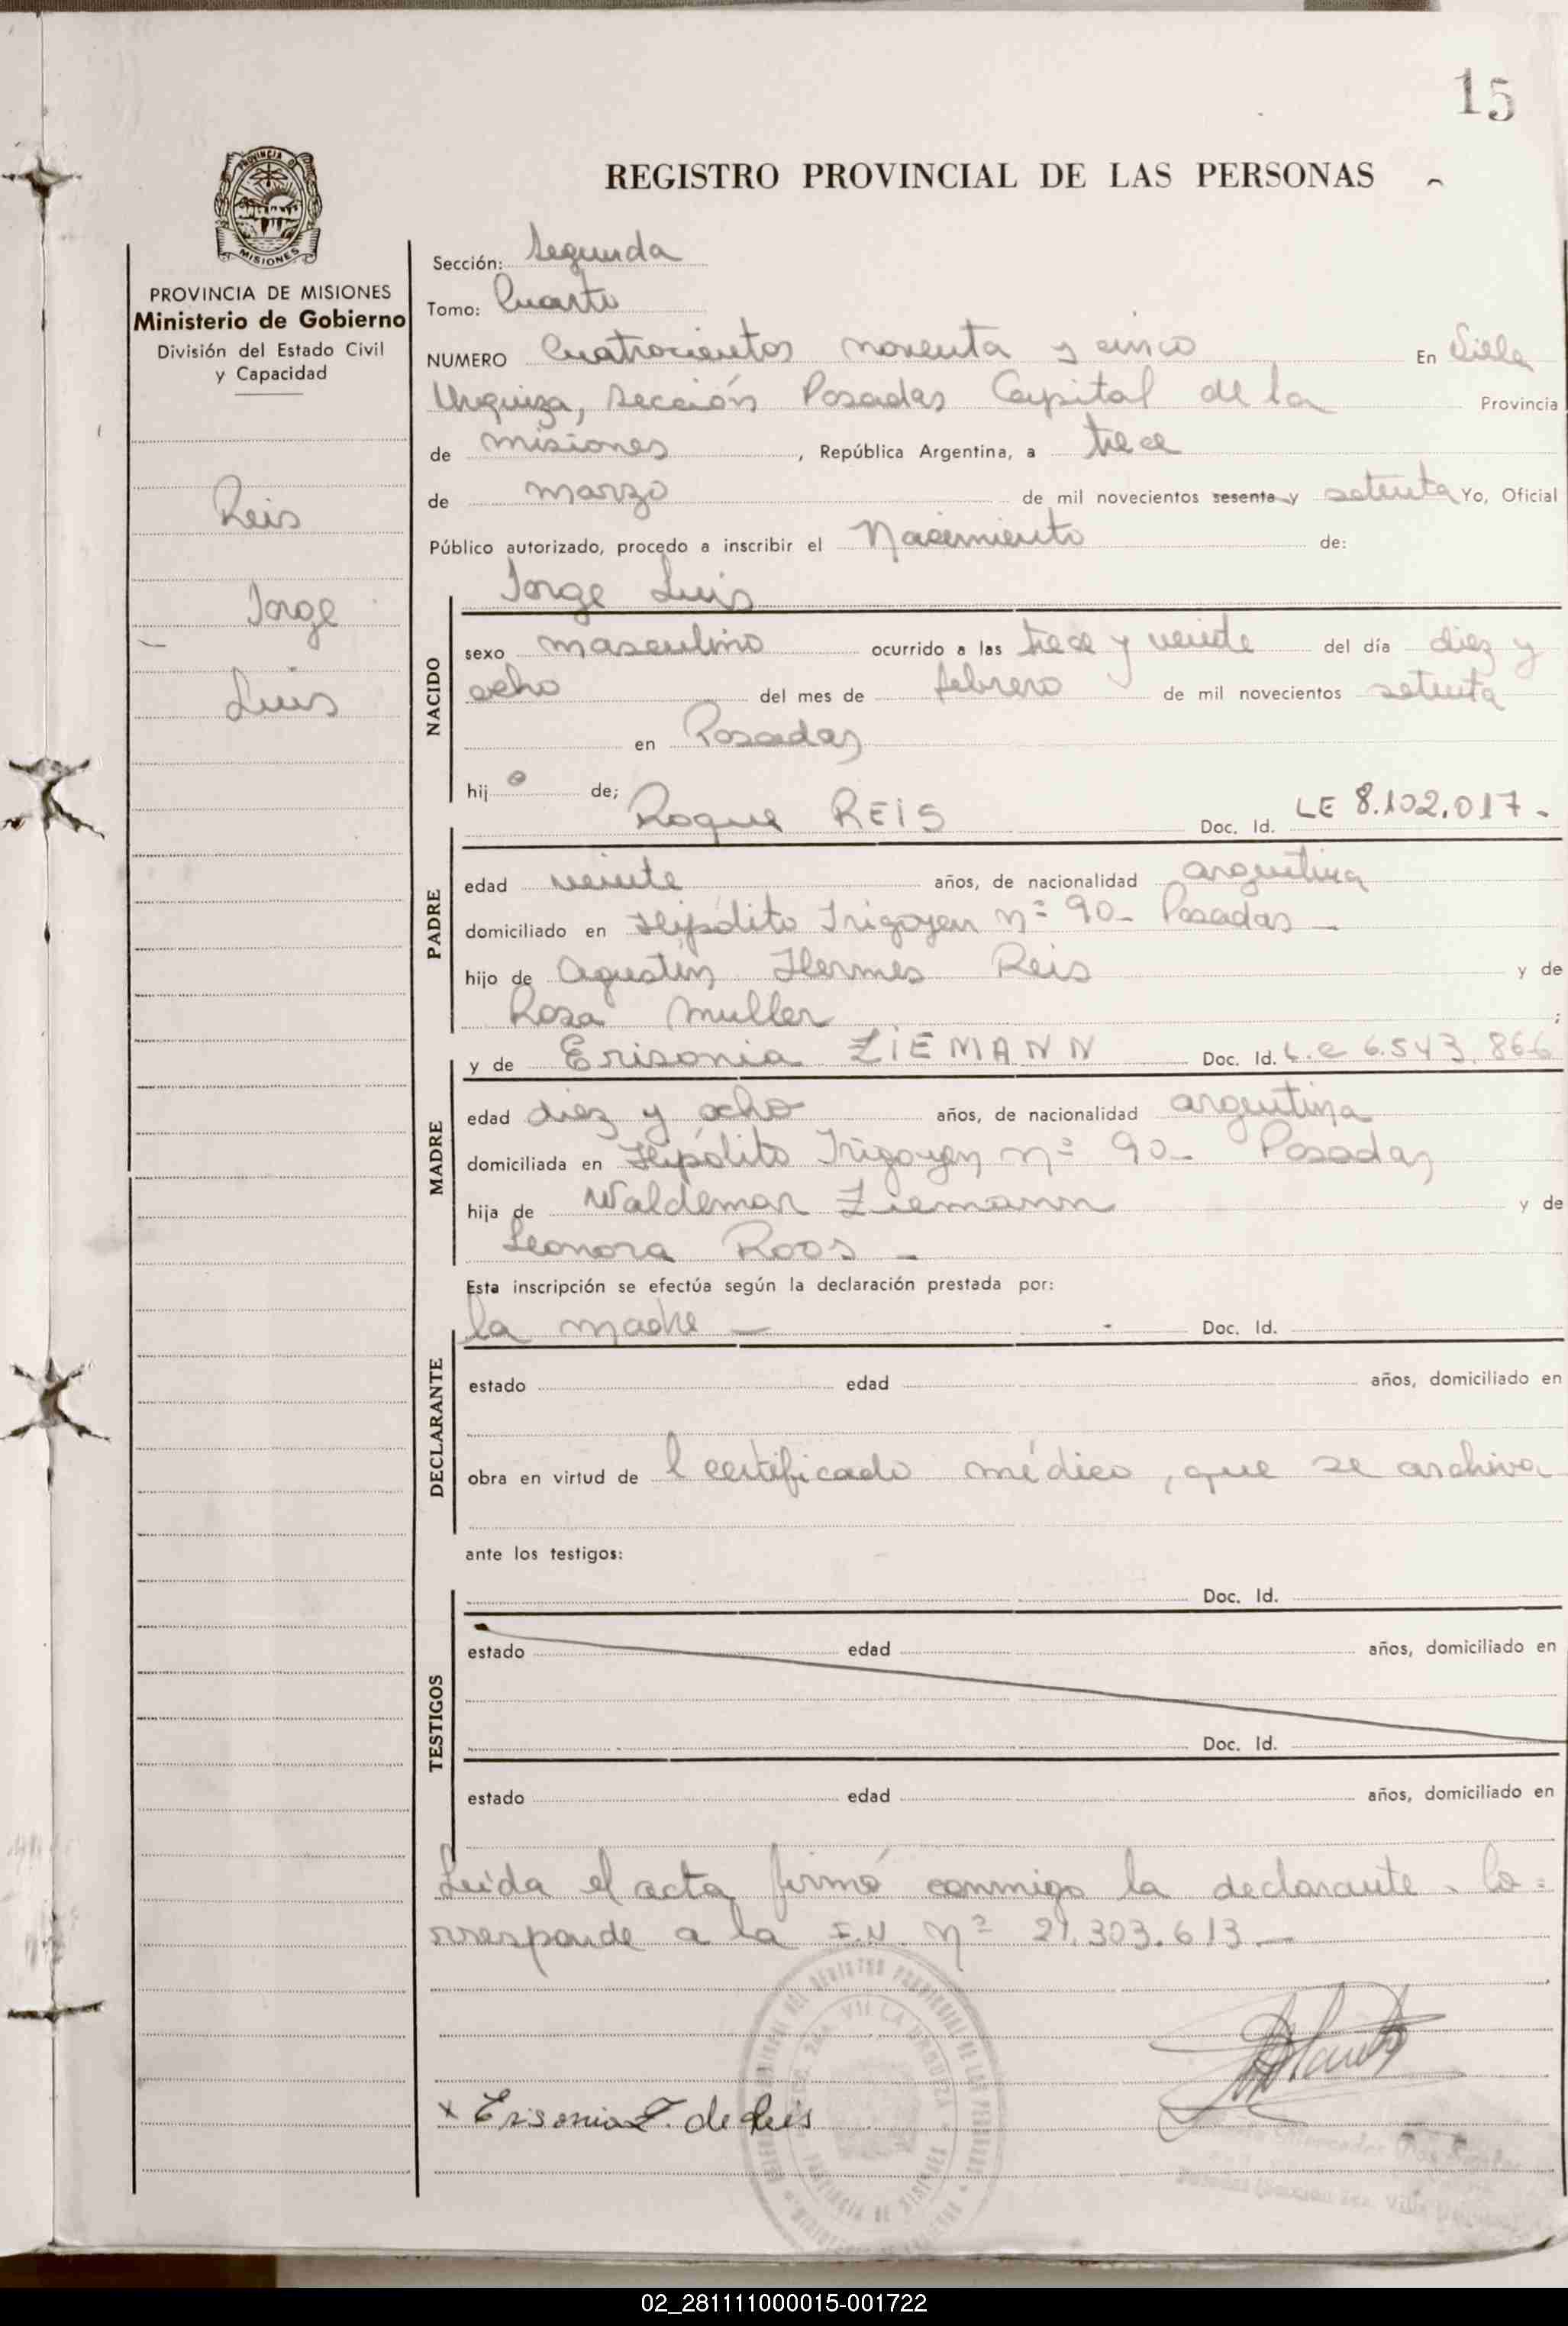 15
REGISTRO PROVINCIAL DE LAS PERSONAS
PROVINCIA DE MISIONES
Ministerio de Gobierno
División del Estado Civil
y Capacidad
Reis
Jorge
Luis
Sección: Segunda
Tomo: Cuarto
NUMERO Cuatrocientos noventa y cinco En Villa
Urquiza, Sección Posadas Capital de la Provincia
de misiones, República Argentina, a trece
de marzo de mil novecientos sesenta y setenta Yo, Oficial
Público autorizado, procedo a inscribir el Nacimiento de:
Jorge Luis
NACIDO
sexo masculino ocurrido a las trece y veinte del día diez y
ocho del mes de febrero de mil novecientos setenta
en Posadas
hijo de;
Roque REIS Doc. Id. LE 8.102.017.-
PADRE
edad veinte años, de nacionalidad argentina
domiciliado en Hipólito Irigoyen nº 90- Posadas -
hijo de Agustín Hermes Reis y de
Rosa Muller ;
y de Erisonia ZIEMANN Doc. Id. L.C 6.543.866
MADRE
edad diez y ocho años, de nacionalidad argentina
domiciliada en Hipólito Irigoyen nº 90- Posadas
hija de Waldemar Ziemann y de
Leonora Roos -
Esta inscripción se efectúa según la declaración prestada por:
la madre - Doc. Id.
DECLARANTE
estado edad años, domiciliado en
obra en virtud de l certificado médico, que se archiva
ante los testigos:
Doc. Id.
TESTIGOS
estado edad años, domiciliado en
Doc. Id.
estado edad años, domiciliado en
Leida el acta firmó conmigo la declarante. Co=
rresponde a la F.N. Nº 21.303.613.-
x Erisonia Z. de Reis
02_281111000015-001722